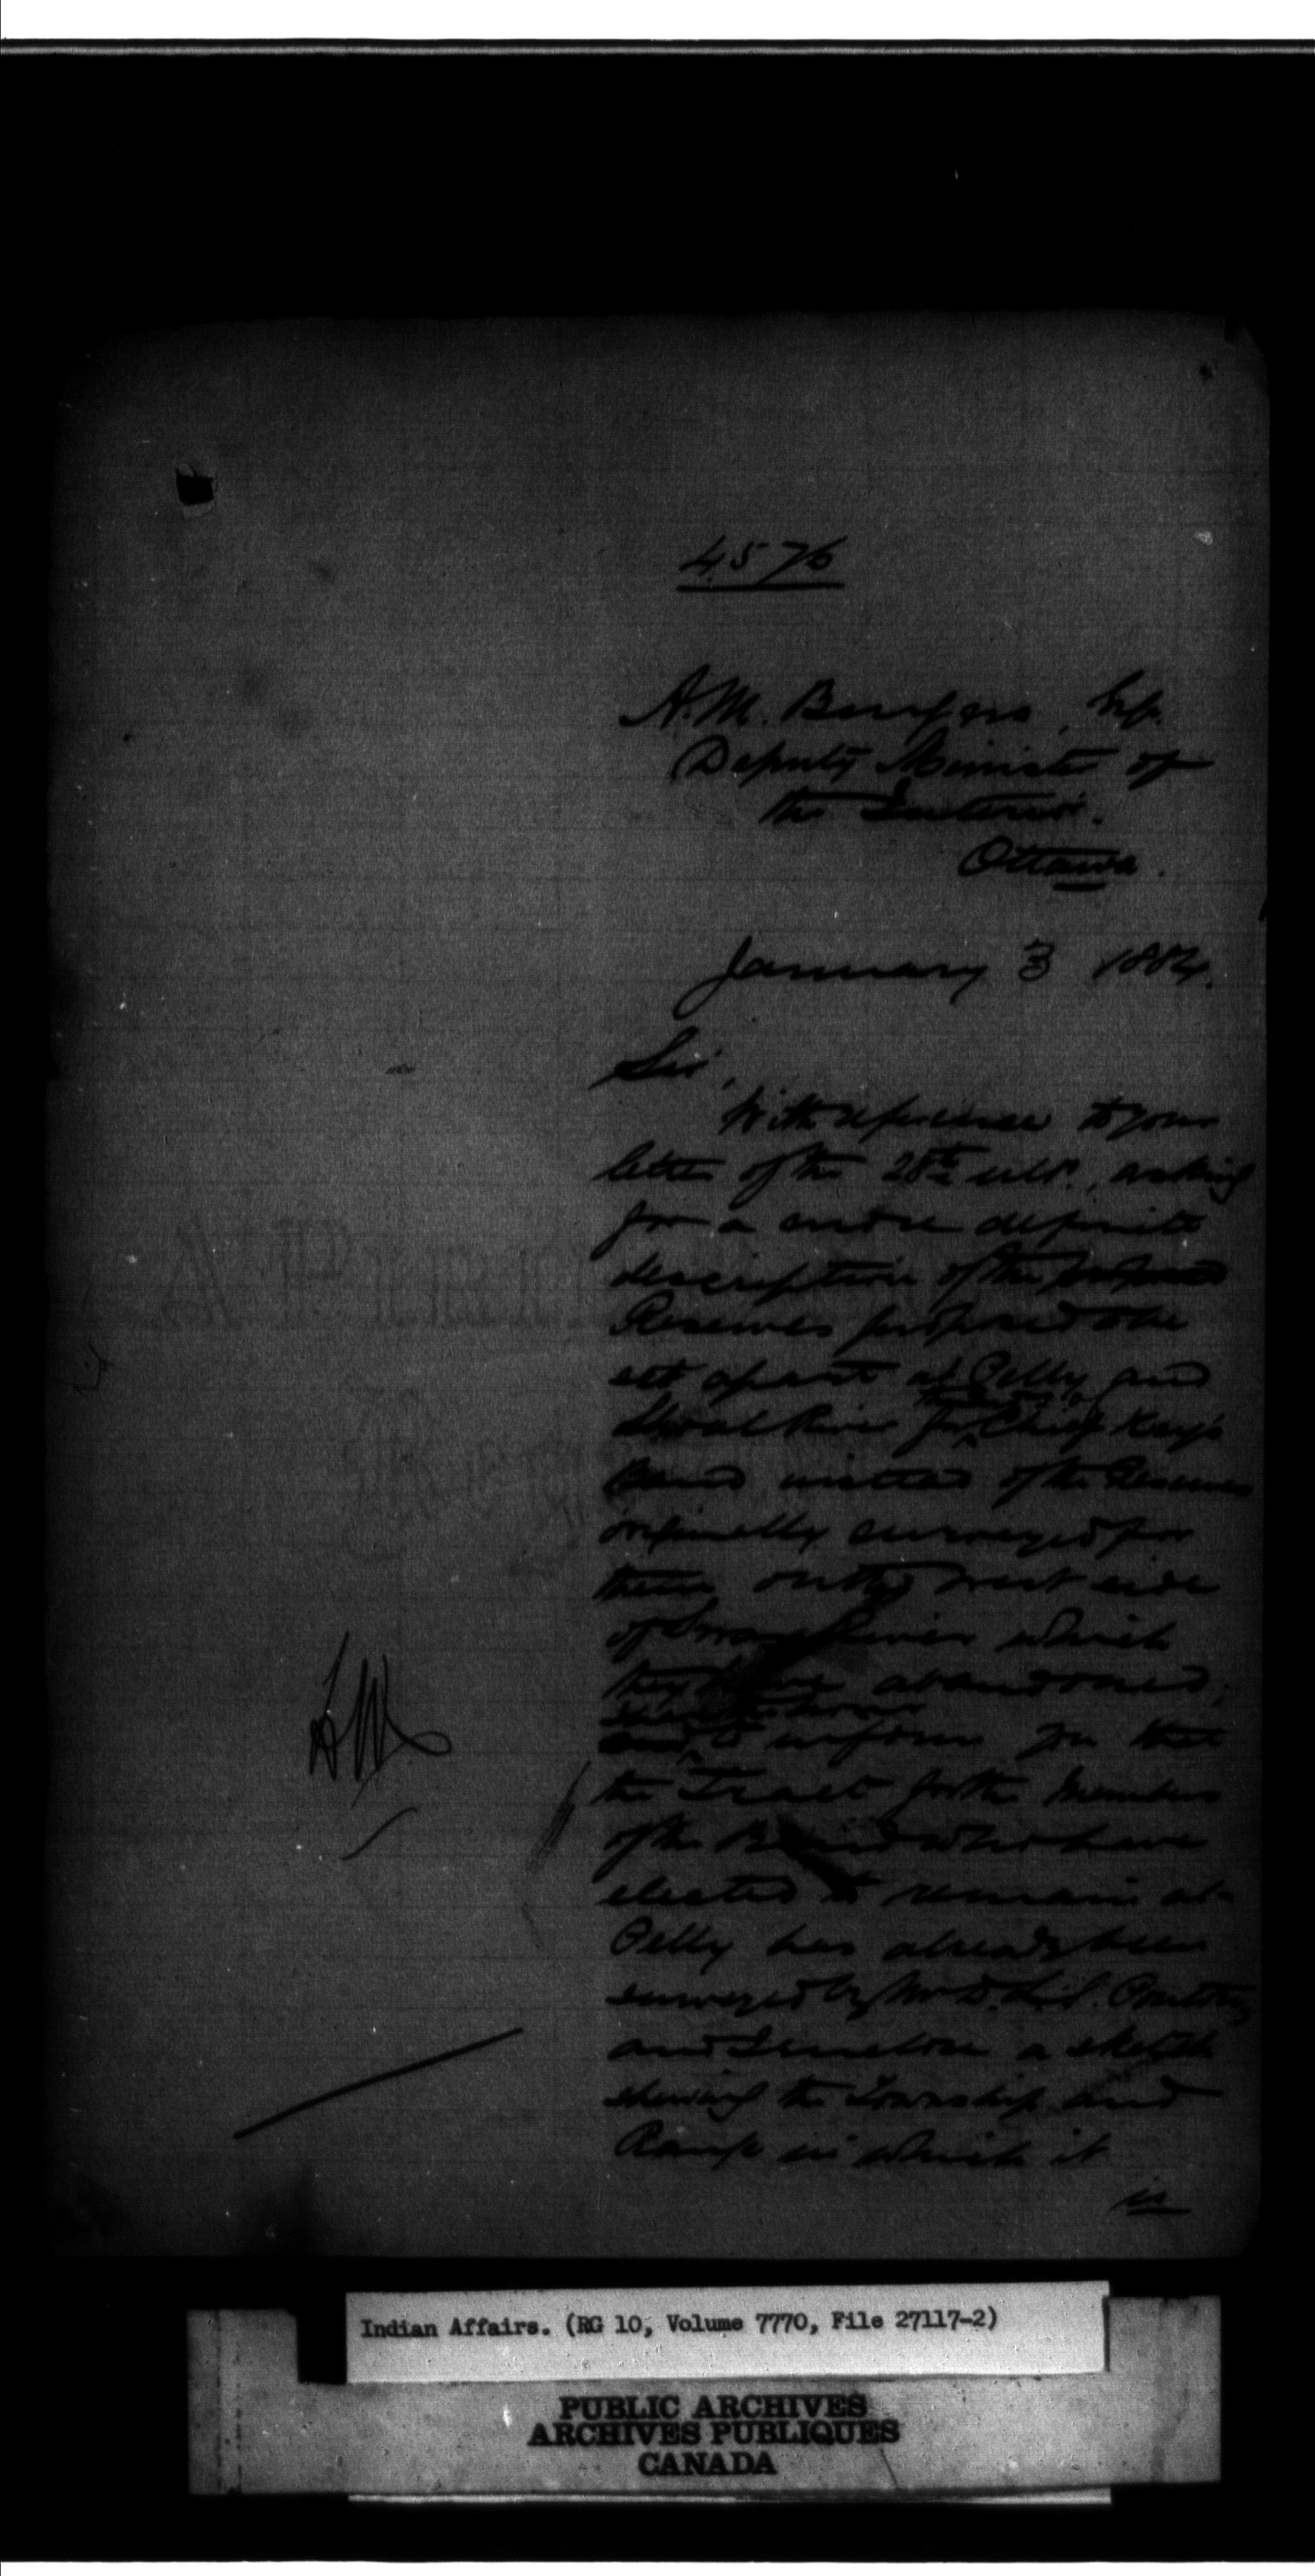 4576
A.M. Burgess, Esq.
Deputy Minister of
the Interior.
Ottawa.
January 3 1884.
Sir,
With reference to your
letter of the 28th ult., asking
for a more definite
description of the
Reserves proposed to be
set apart at Pelly and
Shoal River for Chief Key's
Band instead of the Reserve
originally surveyed for
them on the west side
of Swan River which
they have abandoned;
to inform you that
the Tract for the Members
of the Band who have
elected to remain at
Pelly has already been
surveyed by Mr D.L.S.
and I enclose a sketch
shewing the Township and
Range in which it
is
Indian Affairs. (RG 10, Volume 7770, File 27117-2)
PUBLIC ARCHIVES
ARCHIVES PUBLIQUES
CANADA